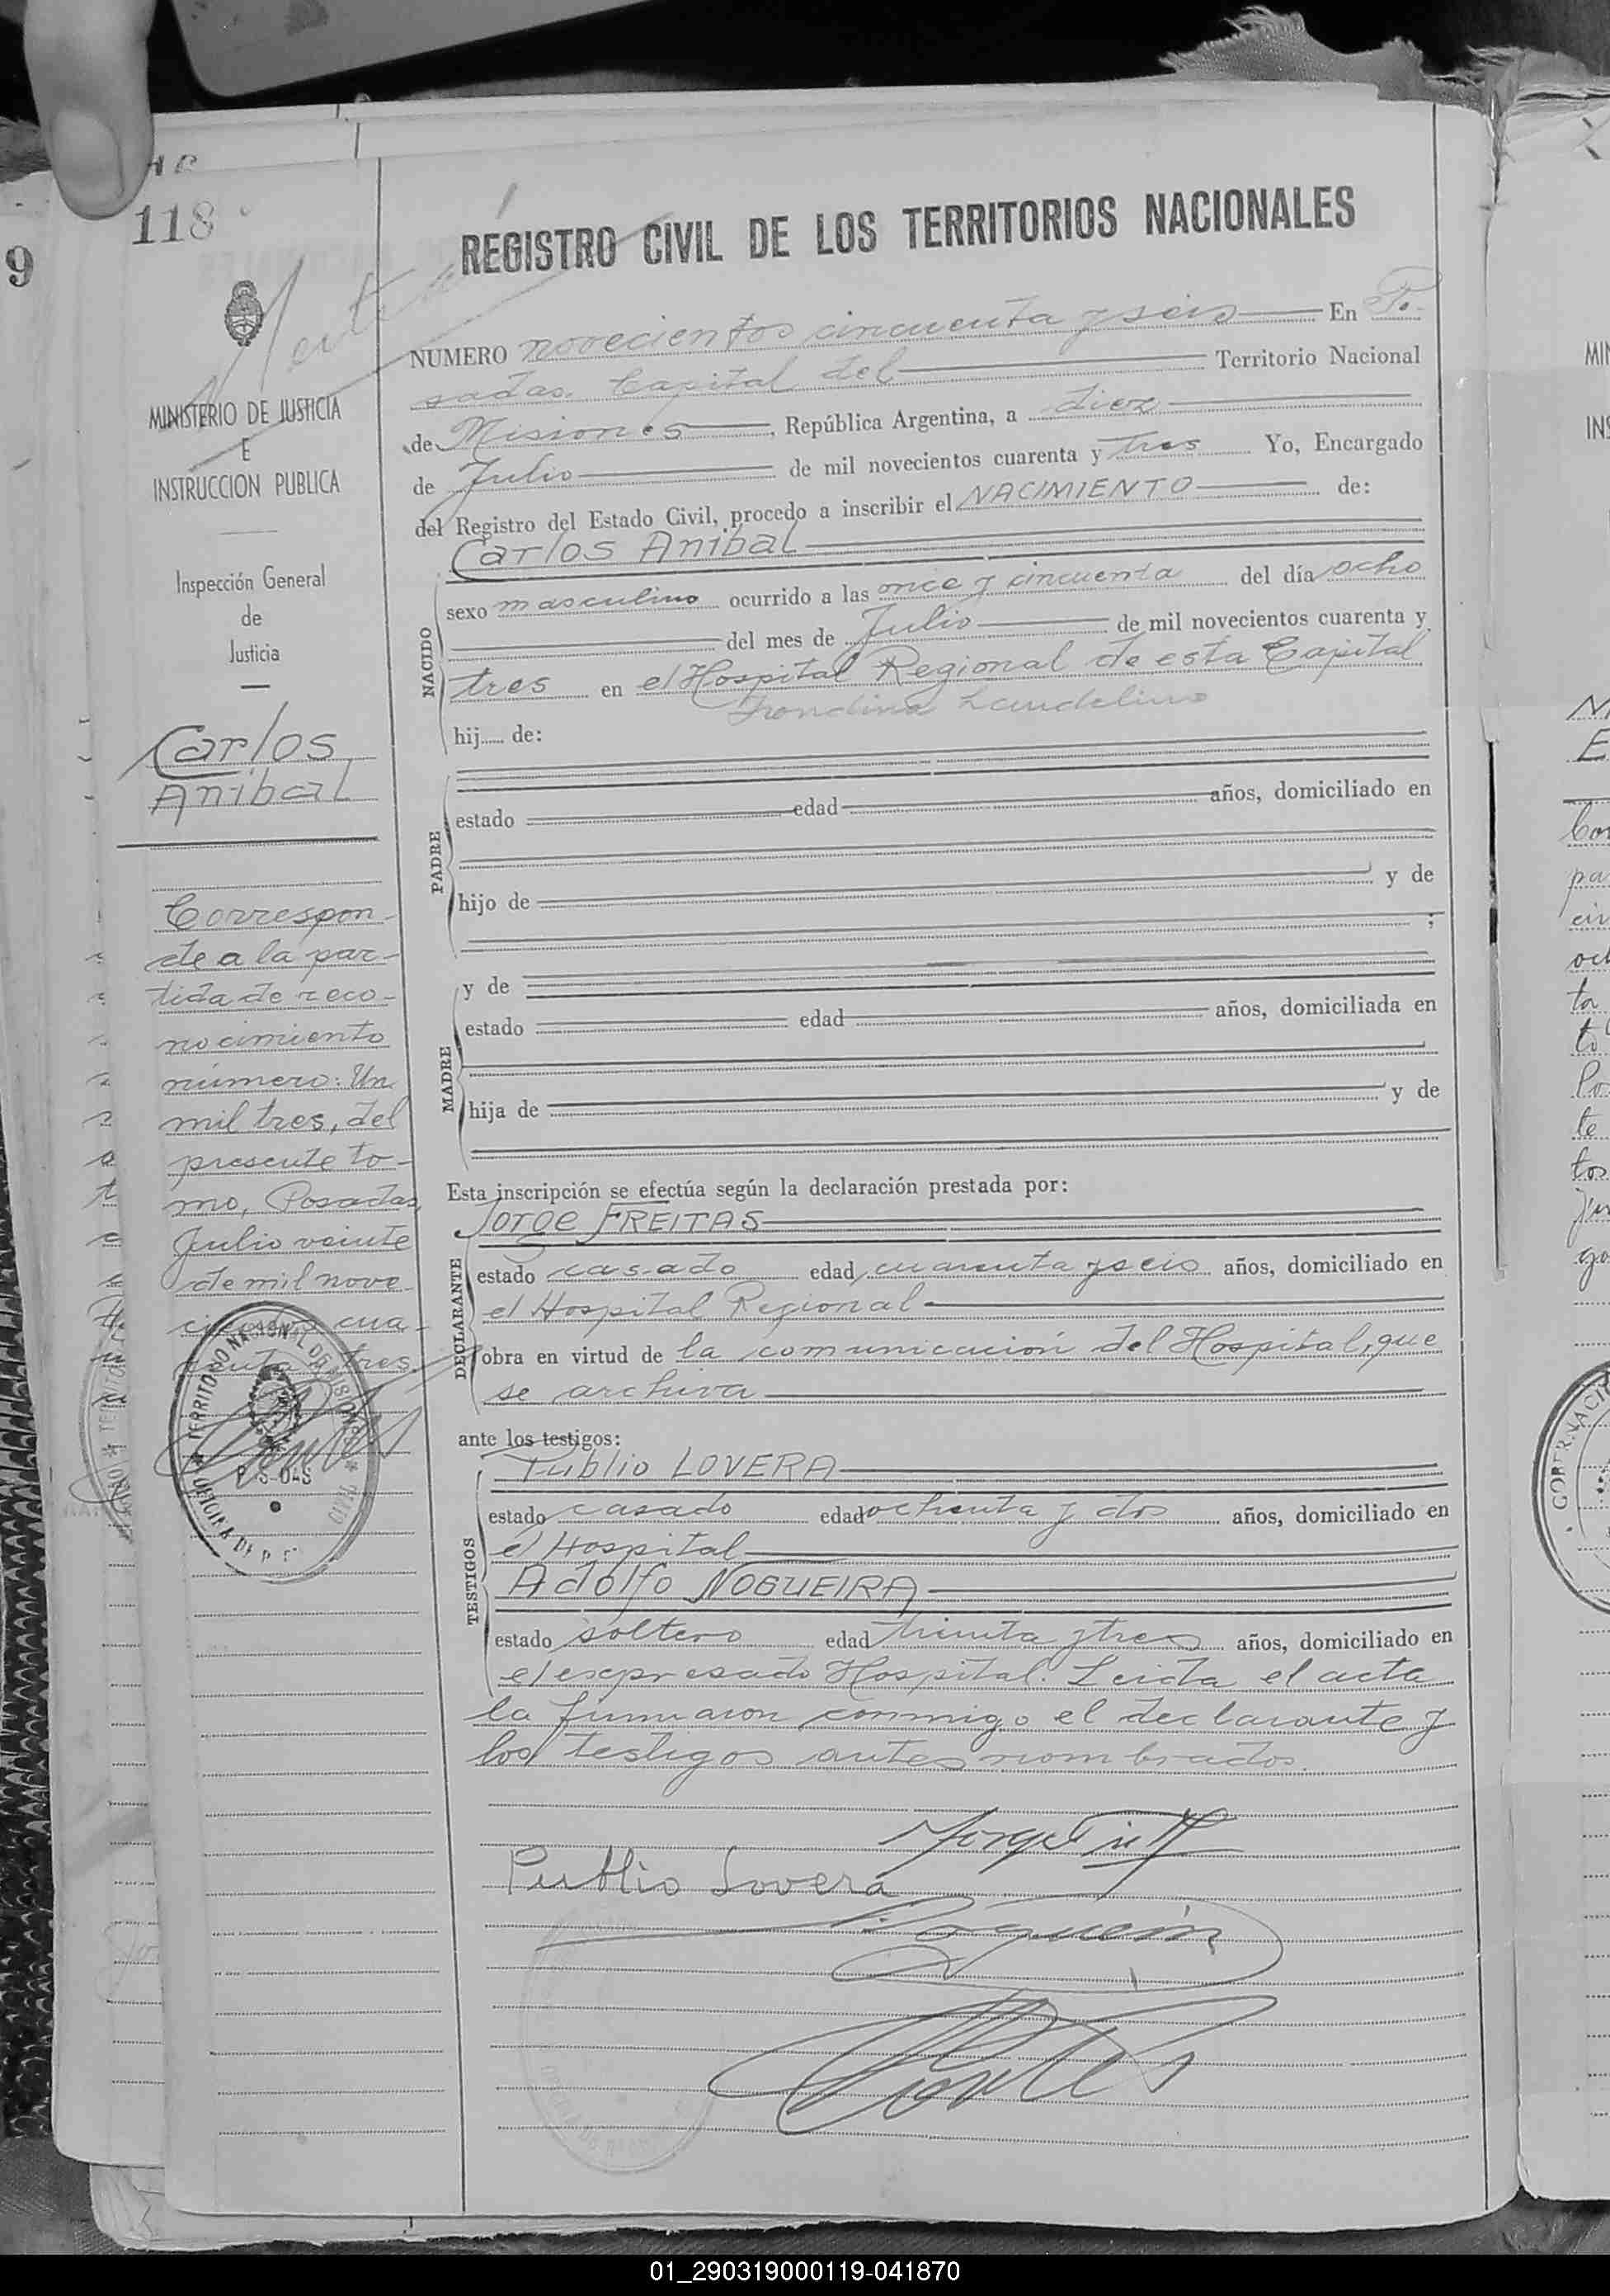 118
9
REGISTRO CIVIL DE LOS TERRITORIOS NACIONALES
NUMERO novecientos cincuenta y seis En Po-
sadas. Capital del Territorio Nacional
de Misiones, República Argentina, a diez
de Julio de mil novecientos cuarenta y tres Yo, Encargado
del Registro del Estado Civil, procedo a inscribir el NACIMIENTO de:
Carlos Anibal
NACIDO
sexo masculino ocurrido a las once y cincuenta del día ocho
del mes de Julio de mil novecientos cuarenta y
tres en el Hospital Regional de esta Capital
Landelino
hij..... de:
PADRE
estado edad años, domiciliado en
hijo de y de
;
MADRE
y de
estado edad años, domiciliada en
hija de y de
Esta inscripción se efectúa según la declaración prestada por:
DECLARANTE
Jorge FREITAS
estado casado edad cuarenta y seis años, domiciliado en
el Hospital Regional
obra en virtud de la comunicación del Hospital, que
se archiva
ante los testigos:
TESTIGOS
Publio LOVERA
estado casado edad ochenta y dos años, domiciliado en
el Hospital
Adolfo NOGUEIRA
estado soltero edad treinta y tres años, domiciliado en
el expresado Hospital. Leida el acta
la firmaron conmigo el declarante y
los testigos antes nombrados.
Publio Lovera
MINISTERIO DE JUSTICIA
E
INSTRUCCION PUBLICA
Inspección General
de
Justicia
Carlos
Anibal
Correspon-
de a la par-
tida de reco-
nocimiento
número: Un
mil tres, del
presente to-
mo, Posadas,
Julio veinte
de mil nove-
cientos cua-
renta y tres.
TERRITORIO NACIONAL DE MISIONES
POSADAS
01_290319000119-041870